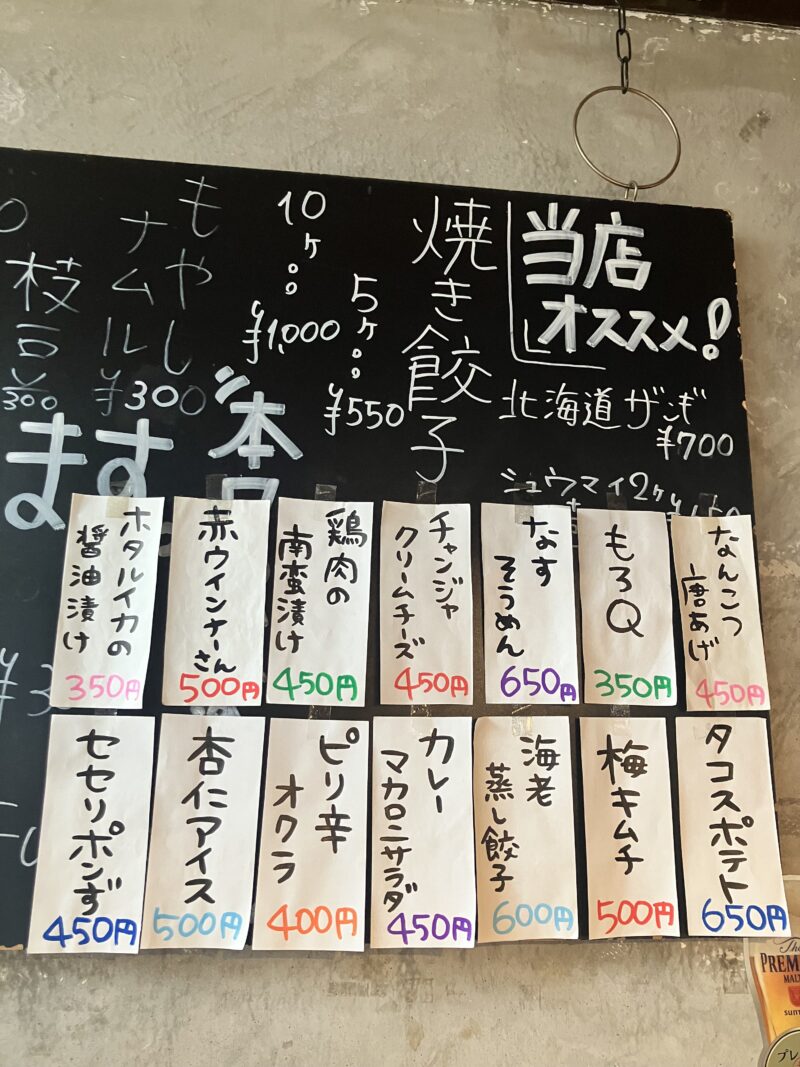 当店
オススメ!
北海道ザンギ
¥700
シュウマイ2ケ
焼き餃子
5ケ。。
¥550
10ケ。。
¥1,000
もやし
ナムル
¥300
枝豆
300
ます。
本日
なんこつ
唐あげ
450円
もろQ
350円
なす
そうめん
650円
チャンジャ
クリームチーズ
450円
鶏肉の
南蛮漬け
450円
赤ウインナーさん
500円
ホタルイカの
醤油漬け
350円
タコスポテト
650円
梅キムチ
500円
海老
蒸し餃子
600円
カレー
マカロニサラダ
450円
ピリ辛
オクラ
400円
杏仁アイス
500円
セセリポンず
450円
The
PREM
MAL
SUNT
プレ